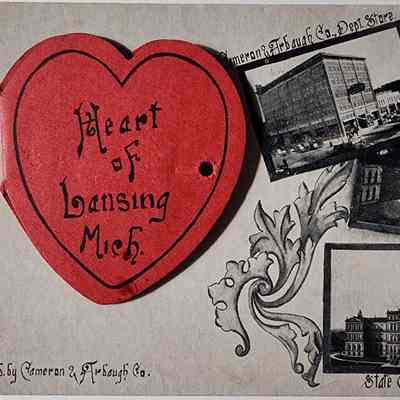 Cameron & Arbaugh Co., Dept. Store
Heart
of
Lansing
Mich.
by Cameron & Arbaugh Co.
State